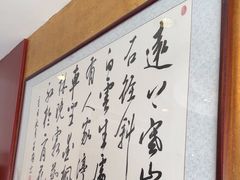 遠上寒山
石徑斜
白雲生處
有人家停
車坐愛楓
林晚霜葉
紅於二月